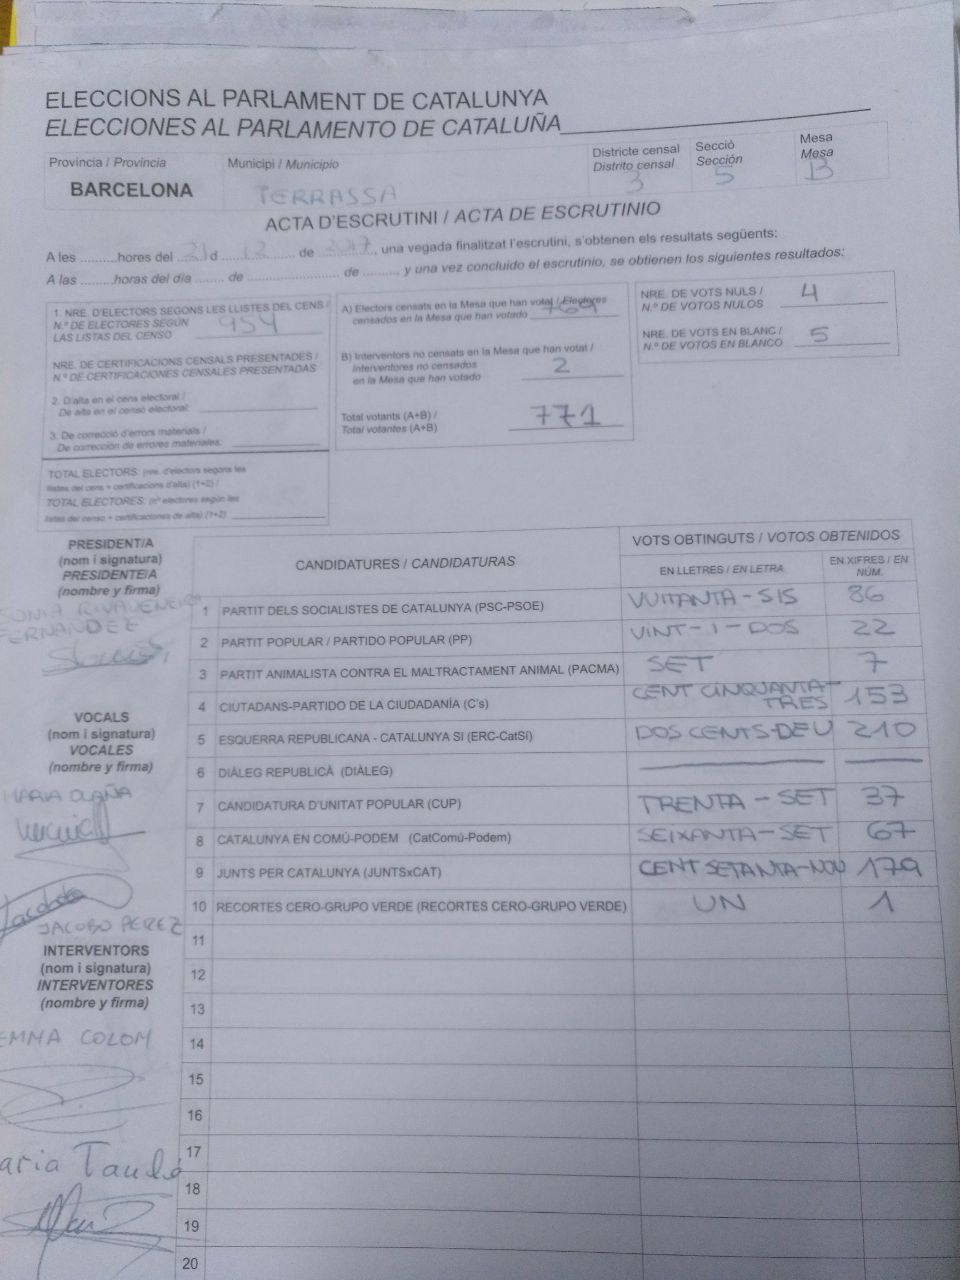 ELECCIONS AL PARLAMENT DE CATALUNYA
ELECCIONES AL PARLAMENTO DE CATALUÑA
Provincia / Provincia
BARCELONA
Municipi / Municipio
TERRASSA
Districte censal
Distrito censal
3
Secció
Sección
5
Mesa
Mesa
B
ACTA D'ESCRUTINI / ACTA DE ESCRUTINIO
A les .........hores del 21 d 12 de 2017, una vegada finalitzat l'escrutini, s'obtenen els resultats següents:
A las .........horas del día ........ de ........................ de .........., y una vez concluido el escrutinio, se obtienen los siguientes resultados:
1. NRE. D'ELECTORS SEGONS LES LLISTES DEL CENS /
N.º DE ELECTORES SEGÚN
LAS LISTAS DEL CENSO 954
NRE. DE CERTIFICACIONS CENSALS PRESENTADES /
N.º DE CERTIFICACIONES CENSALES PRESENTADAS
2. D'alta en el cens electoral /
De alta en el censo electoral:
3. De correcció d'errors materials /
De corrección de errores materiales:
TOTAL ELECTORS: (nre. d'electors segons les
llistes del cens + certificacions d'alta) (1+2) /
TOTAL ELECTORES: (nº electores según las
listas del censo + certificaciones de alta) (1+2)
A) Electors censats en la Mesa que han votat / Electores
censados en la Mesa que han votado 769
B) Interventors no censats en la Mesa que han votat /
Interventores no censados
en la Mesa que han votado 2
Total votants (A+B) /
Total votantes (A+B) 771
NRE. DE VOTS NULS /
N.º DE VOTOS NULOS 4
NRE. DE VOTS EN BLANC /
N.º DE VOTOS EN BLANCO 5
PRESIDENT/A
(nom i signatura)
PRESIDENTE/A
(nombre y firma)
SONIA
FERNANDEZ
VOCALS
(nom i signatura)
VOCALES
(nombre y firma)
MARIA OLAÑA
JACOBO PEREZ
INTERVENTORS
(nom i signatura)
INTERVENTORES
(nombre y firma)
EMMA COLOM
aria Tauló
CANDIDATURES / CANDIDATURAS
VOTS OBTINGUTS / VOTOS OBTENIDOS
EN LLETRES / EN LETRA
EN XIFRES / EN
NÚM.
1 PARTIT DELS SOCIALISTES DE CATALUNYA (PSC-PSOE) VUITANTA-SIS 86
2 PARTIT POPULAR / PARTIDO POPULAR (PP) VINT-I-DOS 22
3 PARTIT ANIMALISTA CONTRA EL MALTRACTAMENT ANIMAL (PACMA) SET 7
4 CIUTADANS-PARTIDO DE LA CIUDADANÍA (C's) CENT CINQUANTA-TRES 153
5 ESQUERRA REPUBLICANA - CATALUNYA SI (ERC-CatSí) DOS CENTS-DEU 210
6 DIÀLEG REPUBLICÀ (DIÀLEG)
7 CANDIDATURA D'UNITAT POPULAR (CUP) TRENTA-SET 37
8 CATALUNYA EN COMÚ-PODEM (CatComú-Podem) SEIXANTA-SET 67
9 JUNTS PER CATALUNYA (JUNTSxCAT) CENT SETANTA-NOU 179
10 RECORTES CERO-GRUPO VERDE (RECORTES CERO-GRUPO VERDE) UN 1
11
12
13
14
15
16
17
18
19
20